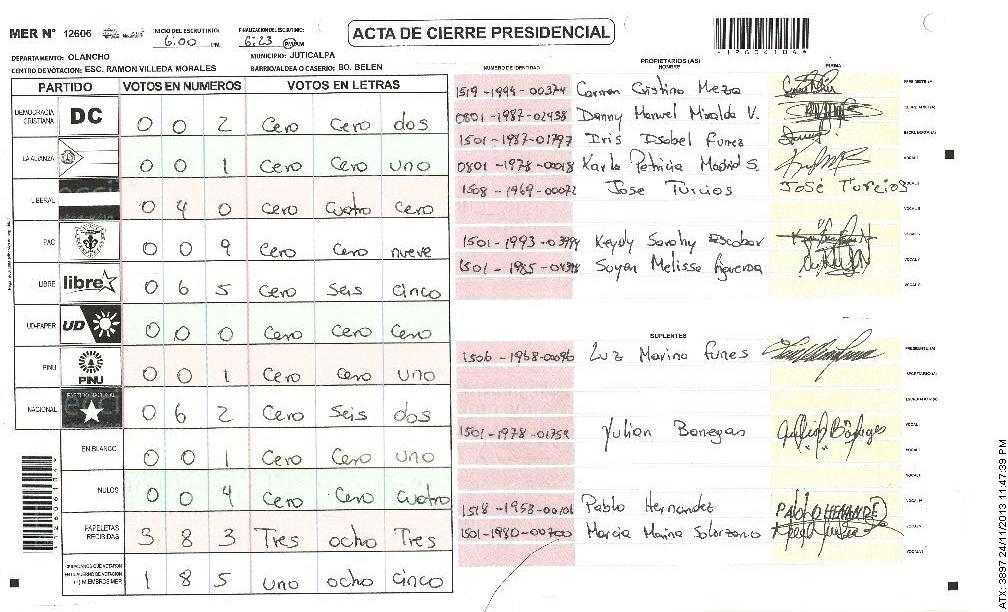 MER N° 12606
INICIO DEL ESCRUTINIO: 6:00 PM.
FINALIZACION DEL ESCRUTINIO: 6:23 PM
ACTA DE CIERRE PRESIDENCIAL
DEPARTAMENTO: OLANCHO
MUNICIPIO: JUTICALPA
CENTRO DE VOTACION: ESC. RAMON VILLEDA MORALES
BARRIO/ALDEA O CASERIO: BO. BELEN
PARTIDO VOTOS EN NUMEROS VOTOS EN LETRAS
DEMOCRACIA CRISTIANA DC 0 0 2 Cero Cero dos
LA ALIANZA 0 0 1 Cero Cero uno
LIBERAL 0 4 0 Cero Cuatro Cero
PAC 0 0 9 Cero Cero nueve
LIBRE libre 0 6 5 Cero Seis Cinco
UD-FAPER UD 0 0 0 Cero Cero Cero
PINU PINU 0 0 1 Cero Cero uno
NACIONAL PARTIDO NACIONAL 0 6 2 Cero Seis dos
EN BLANCO 0 0 1 Cero Cero uno
NULOS 0 0 4 Cero Cero Cuatro
PAPELETAS RECIBIDAS 3 8 3 Tres ocho Tres
CIUDADANOS QUE VOTARON EN CUADERNO DE VOTACION (+) MIEMBROS MER 1 8 5 uno ocho cinco
NUMERO DE IDENTIDAD PROPIETARIOS (AS) NOMBRE FIRMA
1519-1994-00374 Carmen Cristina Meza
0801-1987-02438 Danny Manuel Miralda V.
1501-1987-01797 Iris Isabel Funez
0801-1978-00018 Karla Patricia Madrid S.
1508-1969-00072 Jose Turcios José Turcios
1501-1993-03994 Keydy Sarahy Escobar
1501-1985- Suyen Melissa figueroa
SUPLENTES
1506-1968-00096 Luz Marina Funes
1501-1978-01759 Yulian Banegas
1518-1958-00101 Pablo Hernandez PABLO HERNANDEZ
1501-1980-00700 Marcia Marina Solorzano
ATX: 3897 24/11/2013 11:47:39 PM